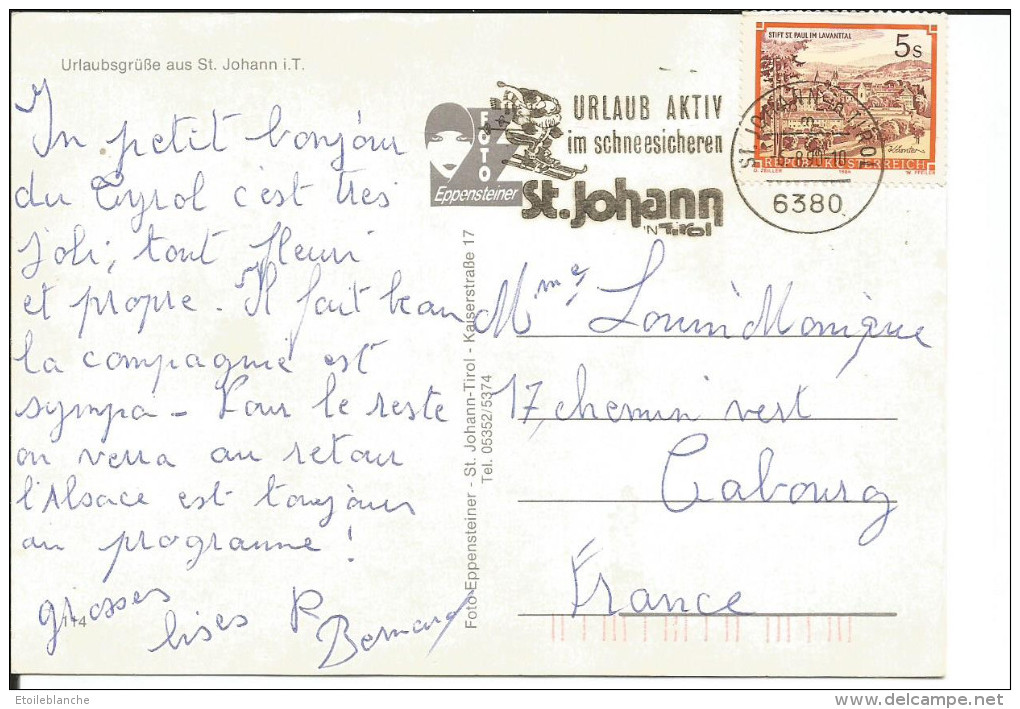 Urlaubsgrüße aus St. Johann i.T.
Un petit bonjour
du Tyrol c'est très
joli, tout fleuri
et propre. Il fait beau
la compagnie est
sympa - Pour le reste
on verra au retour
l'Alsace est toujours
au programme !
grosses
bises
Bernard
114
FOTO
Eppensteiner
URLAUB AKTIV
im schneesicheren
St. Johann
'N TiROL
STIFT ST. PAUL IM LAVANTTAL
5s
REPUBLIK ÖSTERREICH
1984
6380
Foto-Eppensteiner - St. Johann-Tirol - Kaiserstraße 17
Tel. 05352/5374
Mme Monique
17, chemin vert
Cabourg
France
Etoileblanche
delcampe.net